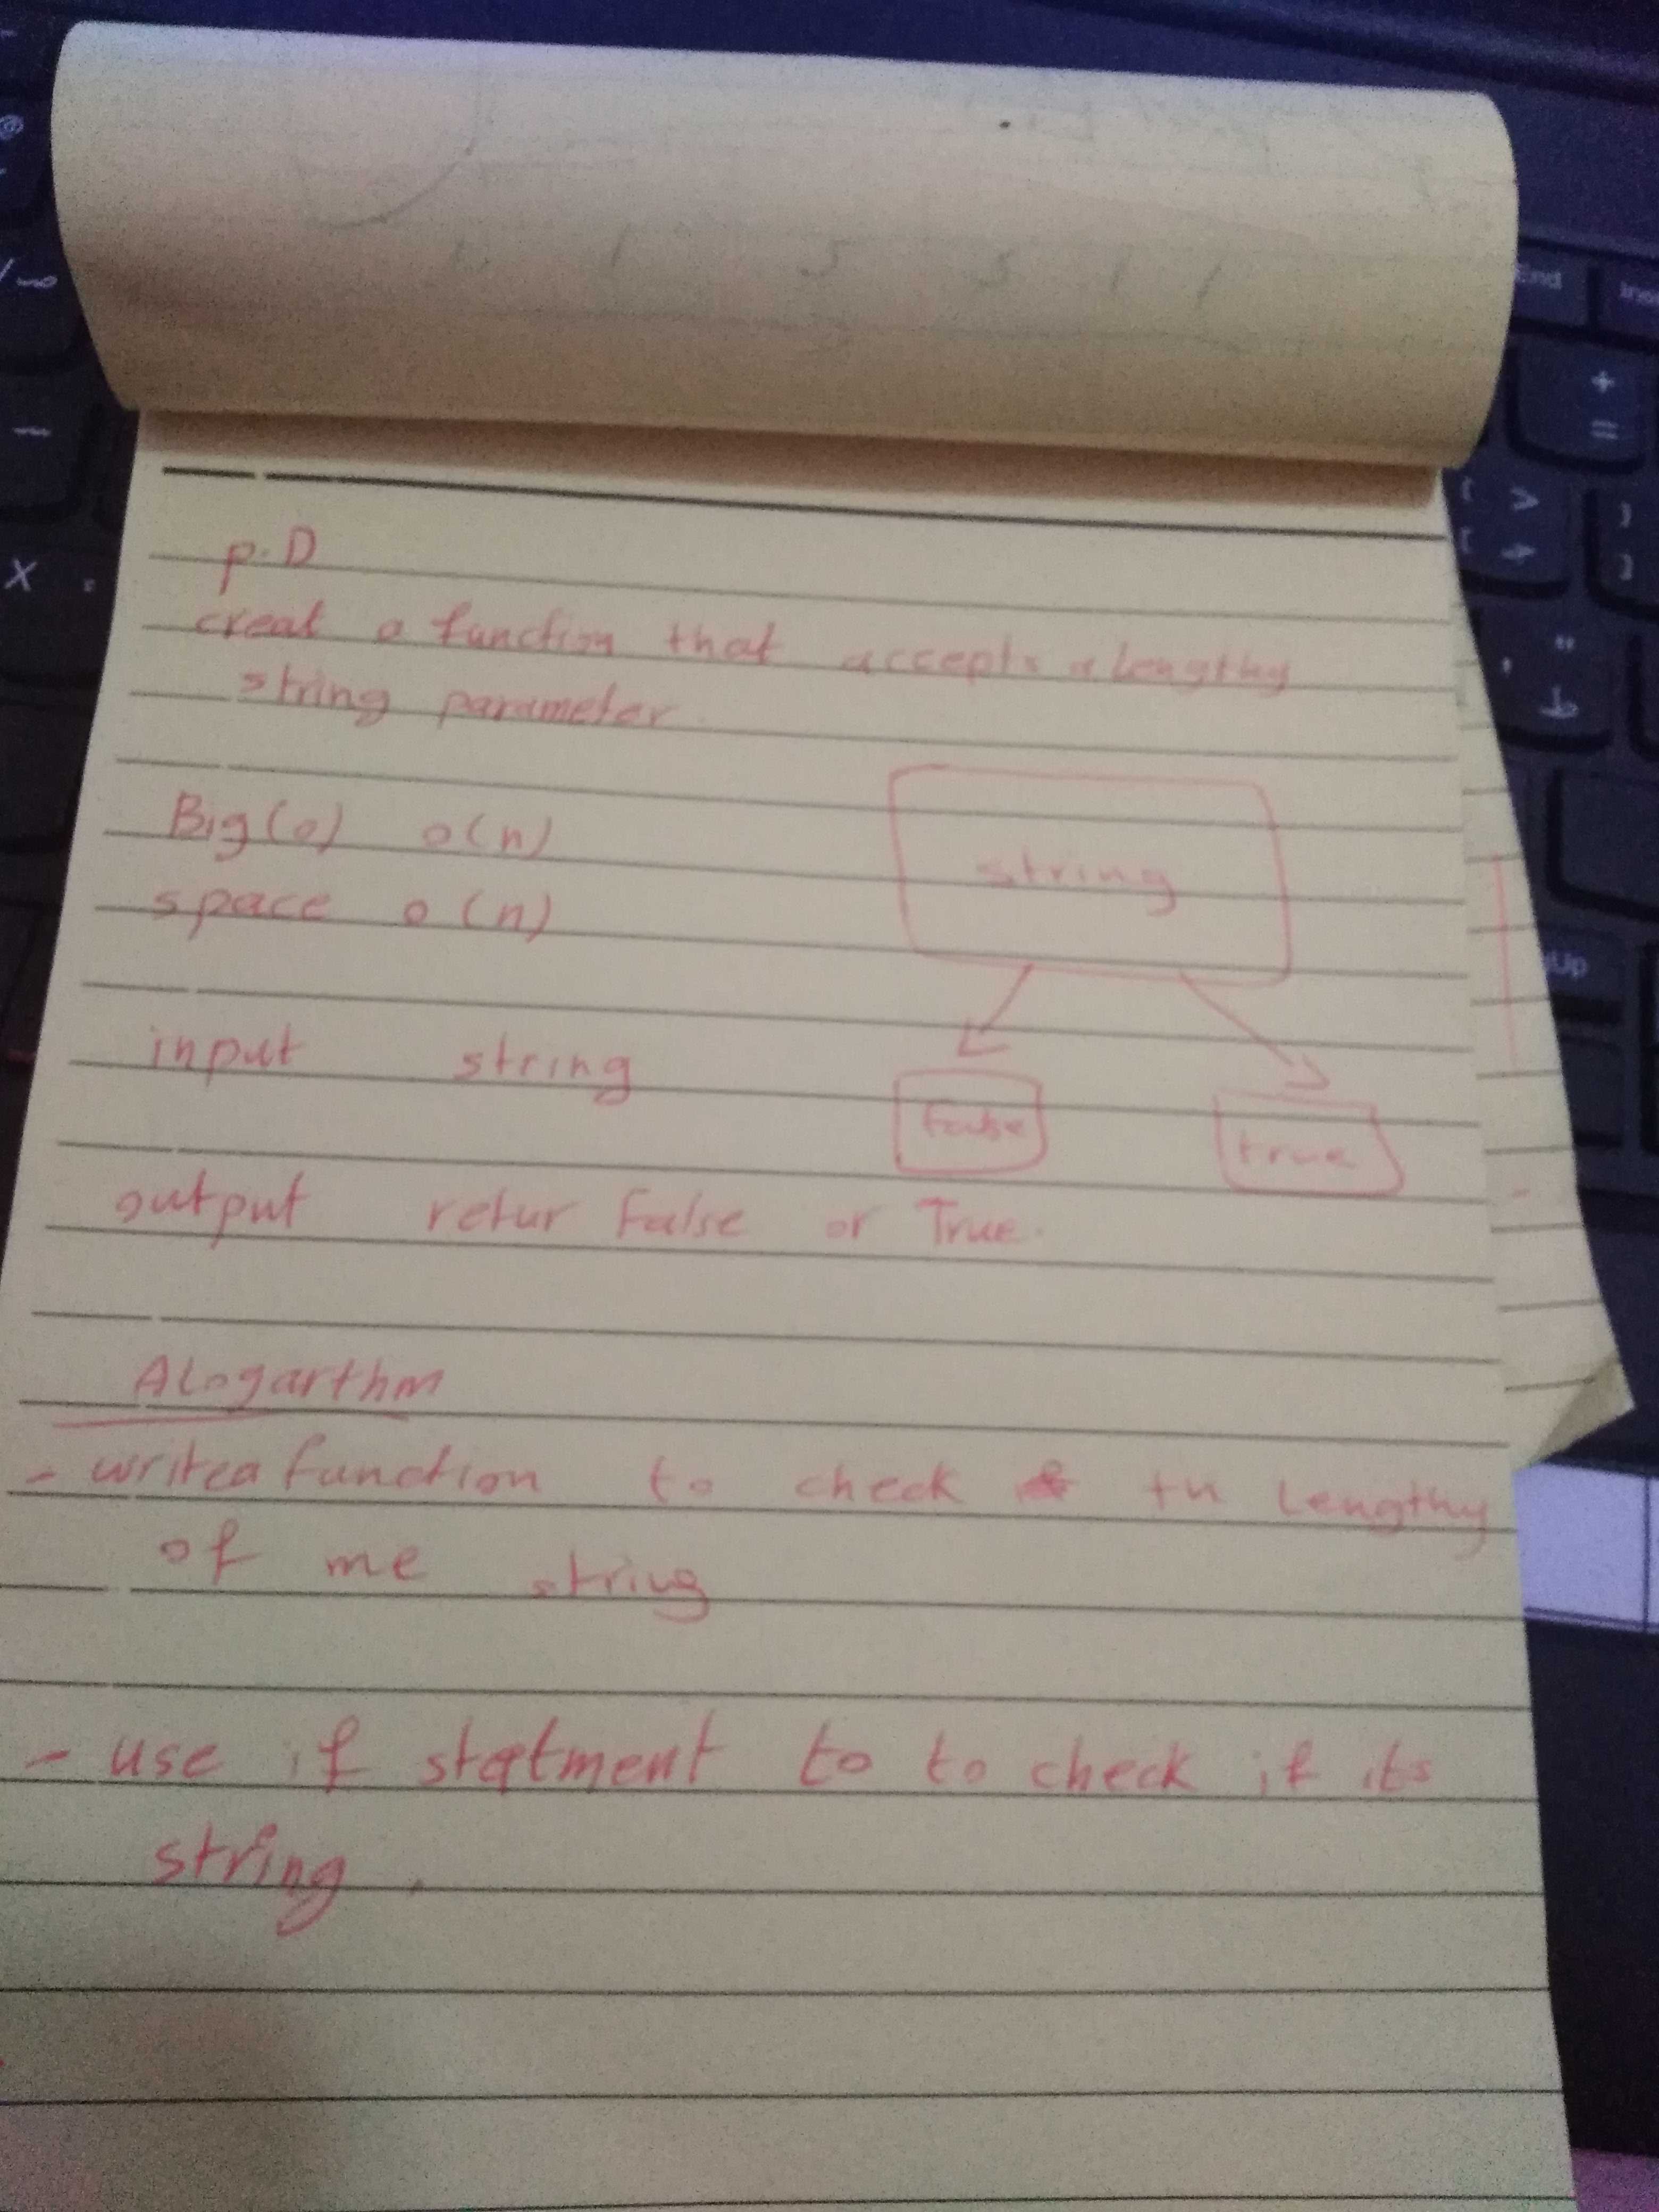 p.D
creat a function that accepts a Lengthy
string parameter.
Big(o) o(n)
space o(n)
string
input string
false true
output retur False or True.
ALogarthm
- write a function to check tn Lengthy
of me string
- use if statment to to check if its
string.
End
Up